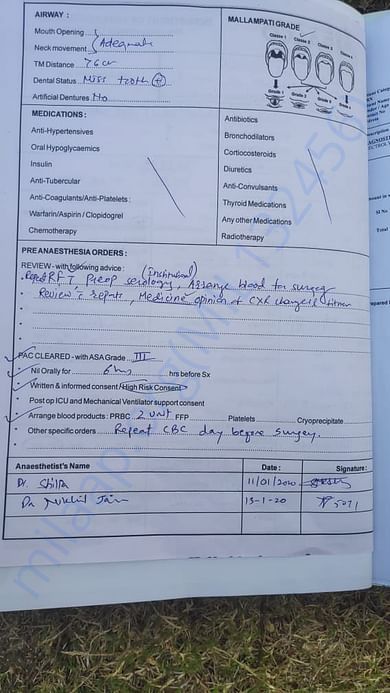 AIRWAY :
Mouth Opening
Neck movement Adequate
TM Distance 76cm
Dental Status Miss tooth (+)
Artificial Dentures No
MALLAMPATI GRADE
Classe 1 Classe 2 Classe 3 Classe 4
Grade 1 Grade 2 Grade 3 Grade 4
MEDICATIONS :
Anti-Hypertensives
Oral Hypoglycaemics
Insulin
Anti-Tubercular
Anti-Coagulants/Anti-Platelets :
Warfarin/Aspirin / Clopidogrel
Chemotherapy
Antibiotics
Bronchodilators
Corticocosteroids
Diuretics
Anti-Convulsants
Thyroid Medications
Any other Medications
Radiotherapy
PREANAESTHESIA ORDERS :
REVIEW - with following advice : (institutional)
Repeat RFT, Preop serology, Arrange blood for surgery
Review c reports, Medicine opinion of CXR changes & fitness
PAC CLEARED - with ASA Grade III
Nil Orally for 6 hrs hrs before Sx
Written & informed consent / High Risk Consent
Post op ICU and Mechanical Ventilator support consent
Arrange blood products : PRBC 2 unit FFP Platelets Cryoprecipitate
Other specific orders Repeat CBC day before surgery.
Anaesthetist's Name Date : Signature :
Dr. Shilpa 11/01/2020
Dr Nikhil Jain 13-1-20 5071